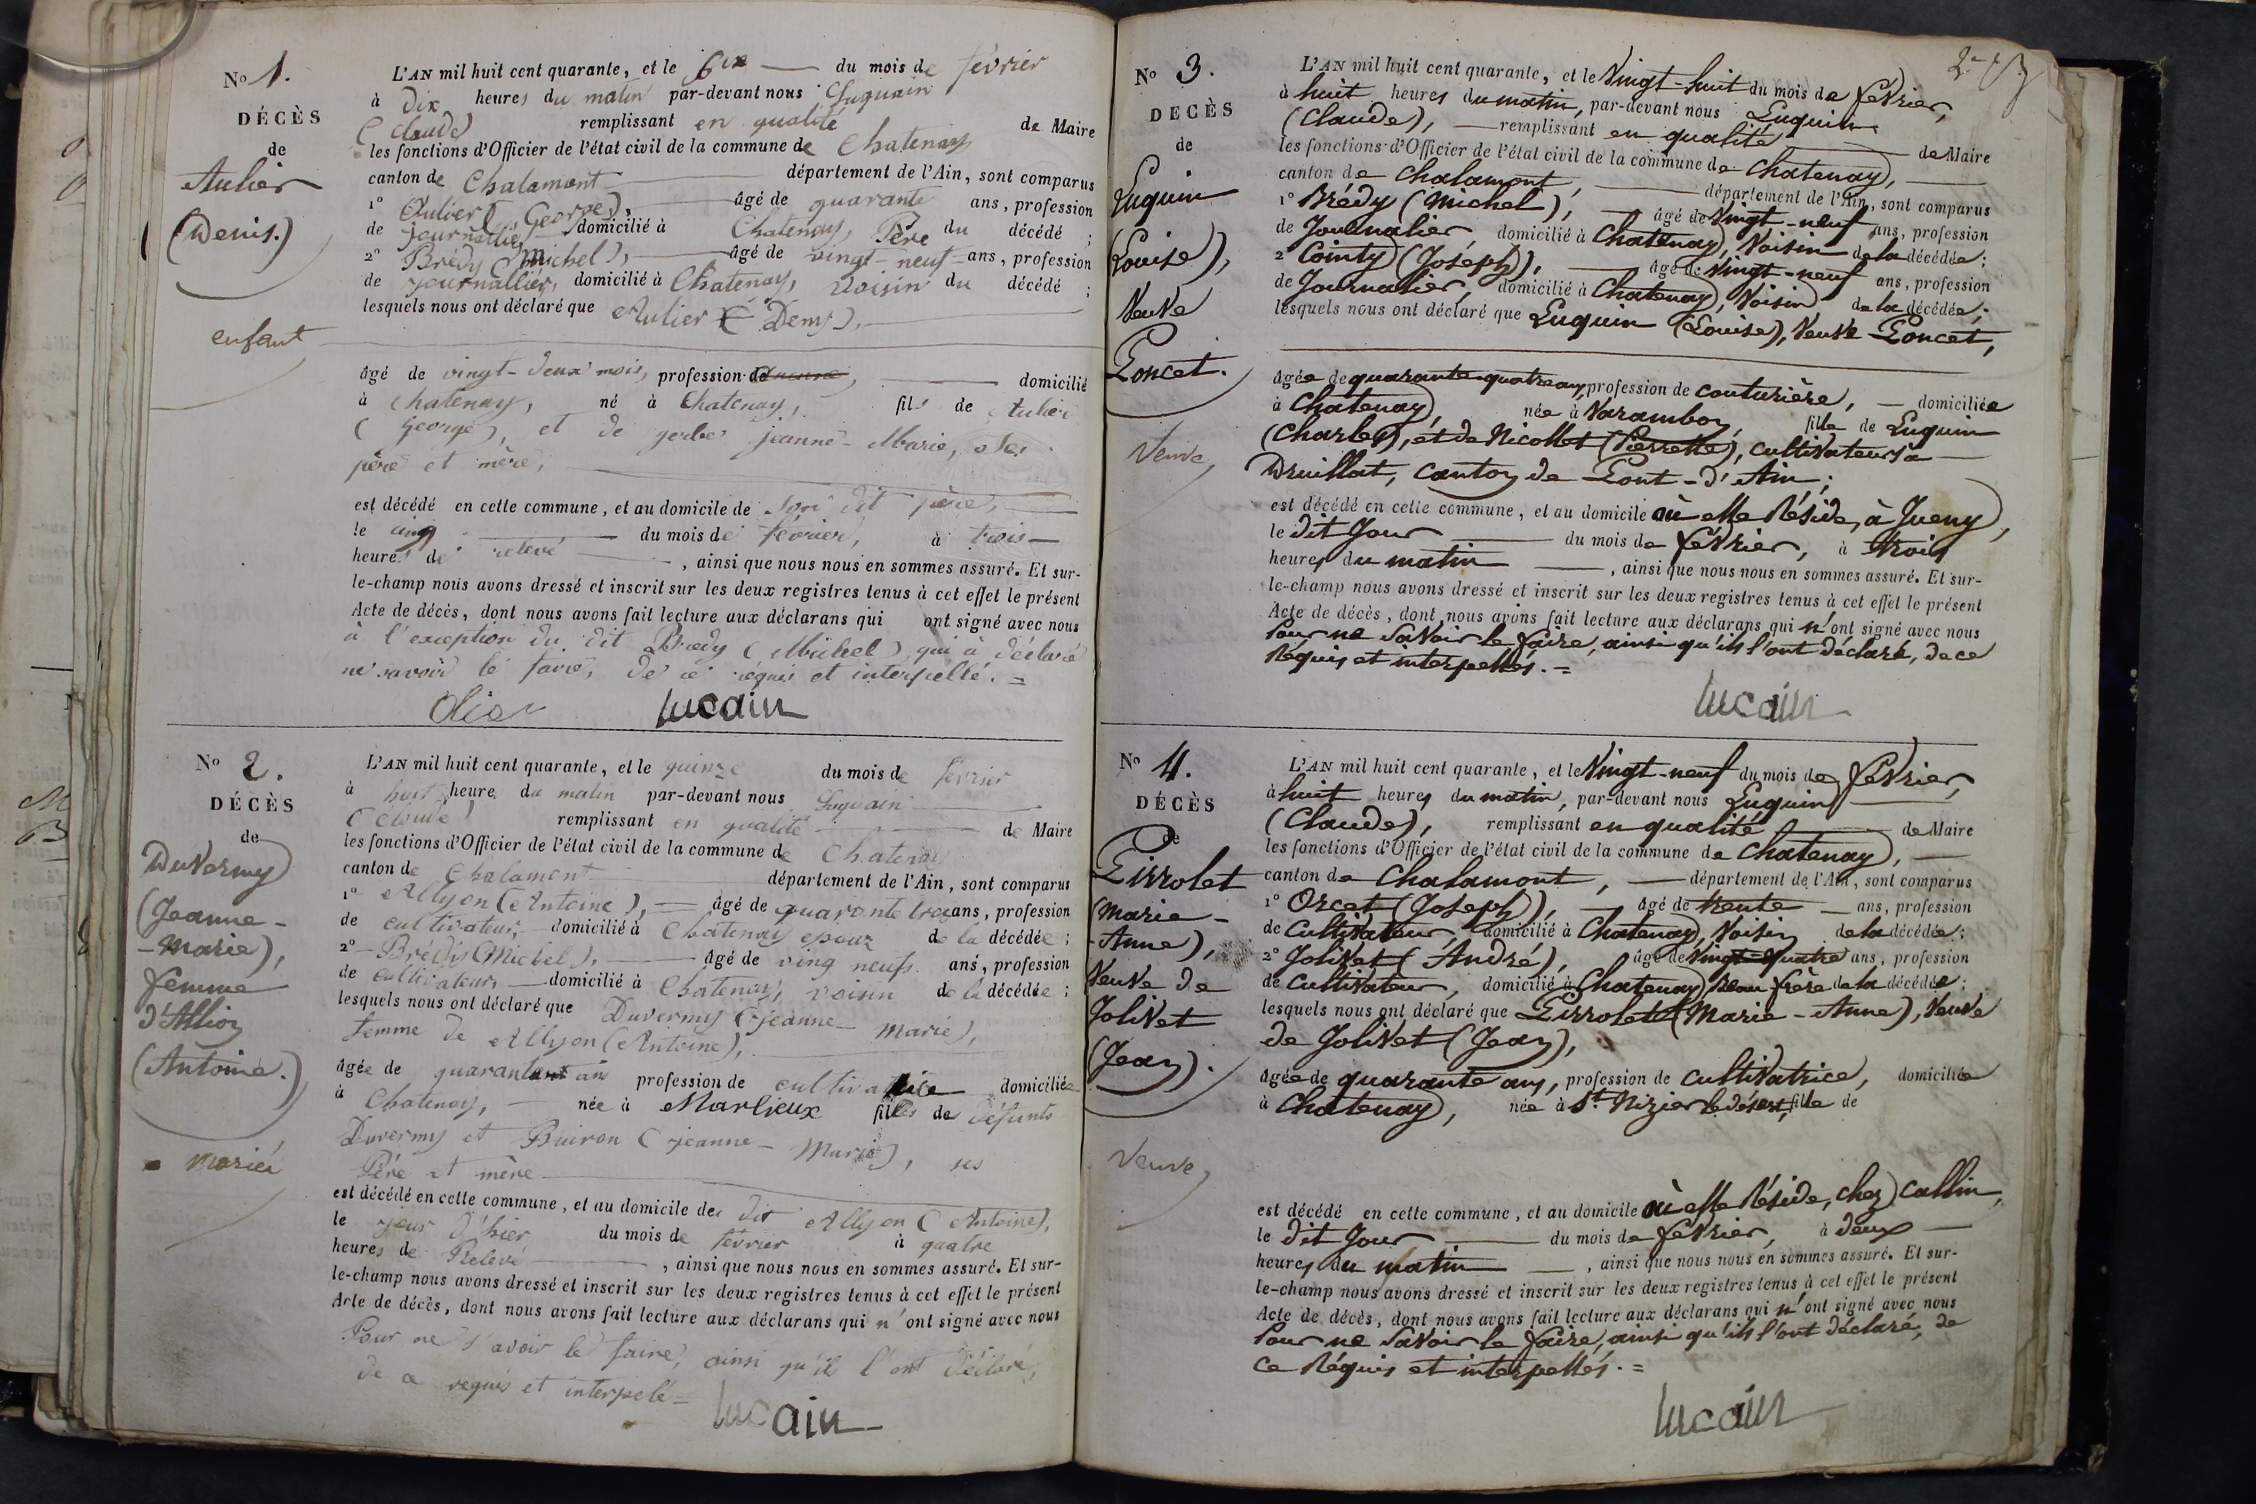 No 1.
DÉCÈS
de
Aulier
(Denis.)
enfant
L'AN mil huit cent quarante, et le six du mois de février
à dix heures du matin par-devant nous Luquain
(Claude) remplissant en qualité de Maire
les fonctions d'Officier de l'état civil de la commune de Chatenay
canton de Chalamont département de l'Ain, sont comparus
1° Aulier (George), âgé de quarante ans, profession
de journallier domicilié à Chatenay, Père du décédé ;
2° Brédy (Michel), âgé de vingt-neuf ans, profession
de journallier, domicilié à Chatenay, voisin du décédé ;
lesquels nous ont déclaré que Aulier (Denis),
âgé de vingt-deux mois, profession de domicilié
à Chatenay, né à Chatenay, fils de Aulier
(George), et de gerbe jeanne-Marie, ses
père et mère,
est décédé en cette commune, et au domicile de son dit père,
le cinq du mois de février, à trois
heures de relevé , ainsi que nous nous en sommes assuré. Et sur-
le-champ nous avons dressé et inscrit sur les deux registres tenus à cet effet le présent
Acte de décès, dont nous avons fait lecture aux déclarans qui ont signé avec nous
à l'exception du dit Brédy (Michel) qui à déclaré
ne savoir le faire, de ce réquis et interpellé. =
Olier lucain
No 2.
DÉCÈS
de
Duvernay
(Jeanne-
-Marie),
femme
d'Allion
(Antoine.)
mariée
L'AN mil huit cent quarante, et le quinze du mois de février
à huit heure du matin par-devant nous Luquain
(Claude) remplissant en qualité de Maire
les fonctions d'Officier de l'état civil de la commune de Chatenay
canton de Chalamont département de l'Ain, sont comparus
1° Allyon (Antoine), âgé de quarante trois ans, profession
de cultivateur, domicilié à Chatenay epoux de la décédée ;
2° Brédy (Michel), âgé de ving neufs ans, profession
de cultivateur, domicilié à Chatenay, voisin de la décédée ;
lesquels nous ont déclaré que Duvernay (jeanne-Marie),
femme de Allyon (Antoine),
âgée de quarante ans profession de cultivatrice domiciliée
à Chatenay, née à Marlieux fille de défunts
Duvernay et Buiron (jeanne-Marie), ses
Père et mère
est décédé en cette commune, et au domicile de dit Allyon (Antoine),
le jour d'hier du mois de février à quatre
heures de Relevé , ainsi que nous nous en sommes assuré. Et sur-
le-champ nous avons dressé et inscrit sur les deux registres tenus à cet effet le présent
Acte de décès, dont nous avons fait lecture aux déclarans qui n'ont signé avec nous
Pour ne s'avoir le faire, ainsi qu'ils l'ont déclaré,
de ce requis et interpelé =
lucain
2
No 3.
DÉCÈS
de
Luquin
(Louise),
Veuve
Poncet.
Veuve,
L'AN mil huit cent quarante, et le Vingt-huit du mois de février,
à huit heures du matin, par-devant nous Luquin
(Claude), remplissant en qualité de Maire
les fonctions d'Officier de l'état civil de la commune de Chatenay,
canton de Chalamont, département de l'Ain, sont comparus
1° Brédy (Michel), âgé de Vingt-neuf ans, profession
de Journalier, domicilié à Chatenay, Voisin de la décédée ;
2° Cointy (Joseph), âgé de Vingt-neuf ans, profession
de Journalier, domicilié à Chatenay, Voisin de la décédée ;
lesquels nous ont déclaré que Luquin (Louise), Veuve Poncet,
âgée de quarante-quatre ans, profession de couturière, domiciliée
à Chatenay, née à Varambon, fille de Luquin
(Charles), et de Nicollet (Pierrette), cultivateurs à
Druillat, canton de Pont-d'Ain ;
est décédé en cette commune, et au domicile où elle Réside, à Jueny,
le dit Jour du mois de février, à trois
heures du matin , ainsi que nous nous en sommes assuré. Et sur-
le-champ nous avons dressé et inscrit sur les deux registres tenus à cet effet le présent
Acte de décès, dont nous avons fait lecture aux déclarans qui n'ont signé avec nous
Pour ne Savoir le faire, ainsi qu'ils l'ont déclaré, de ce
Réquis et interpellés. =
lucain
No 4.
DÉCÈS
de
Pirrolet
(Marie-
-Anne),
Veuve de
Jolivet
(Jean).
Veuve,
L'AN mil huit cent quarante, et le Vingt-neuf du mois de février,
à huit heures du matin, par-devant nous Luquin
(Claude), remplissant en qualité de Maire
les fonctions d'Officier de l'état civil de la commune de Chatenay,
canton de Chalamont, département de l'Ain, sont comparus
1° Orcet (Joseph), âgé de trente ans, profession
de Cultivateur, domicilié à Chatenay, Voisin de la décédée ;
2° Jolivet (André), âgé de Vingt-quatre ans, profession
de Cultivateur, domicilié à Chatenay, Beau frère de la décédée ;
lesquels nous ont déclaré que Pirrolet (Marie-Anne), Veuve
de Jolivet (Jean),
âgée de quarante ans, profession de Cultivatrice, domiciliée
à Chatenay, née à St Nizier le désert, fille de
est décédé en cette commune, et au domicile où elle Réside, chez Callin,
le dit Jour du mois de février, à deux
heures du matin , ainsi que nous nous en sommes assuré. Et sur-
le-champ nous avons dressé et inscrit sur les deux registres tenus à cet effet le présent
Acte de décès, dont nous avons fait lecture aux déclarans qui n'ont signé avec nous
Pour ne Savoir le faire, ainsi qu'ils l'ont déclaré, de
ce Réquis et interpellés. =
lucain